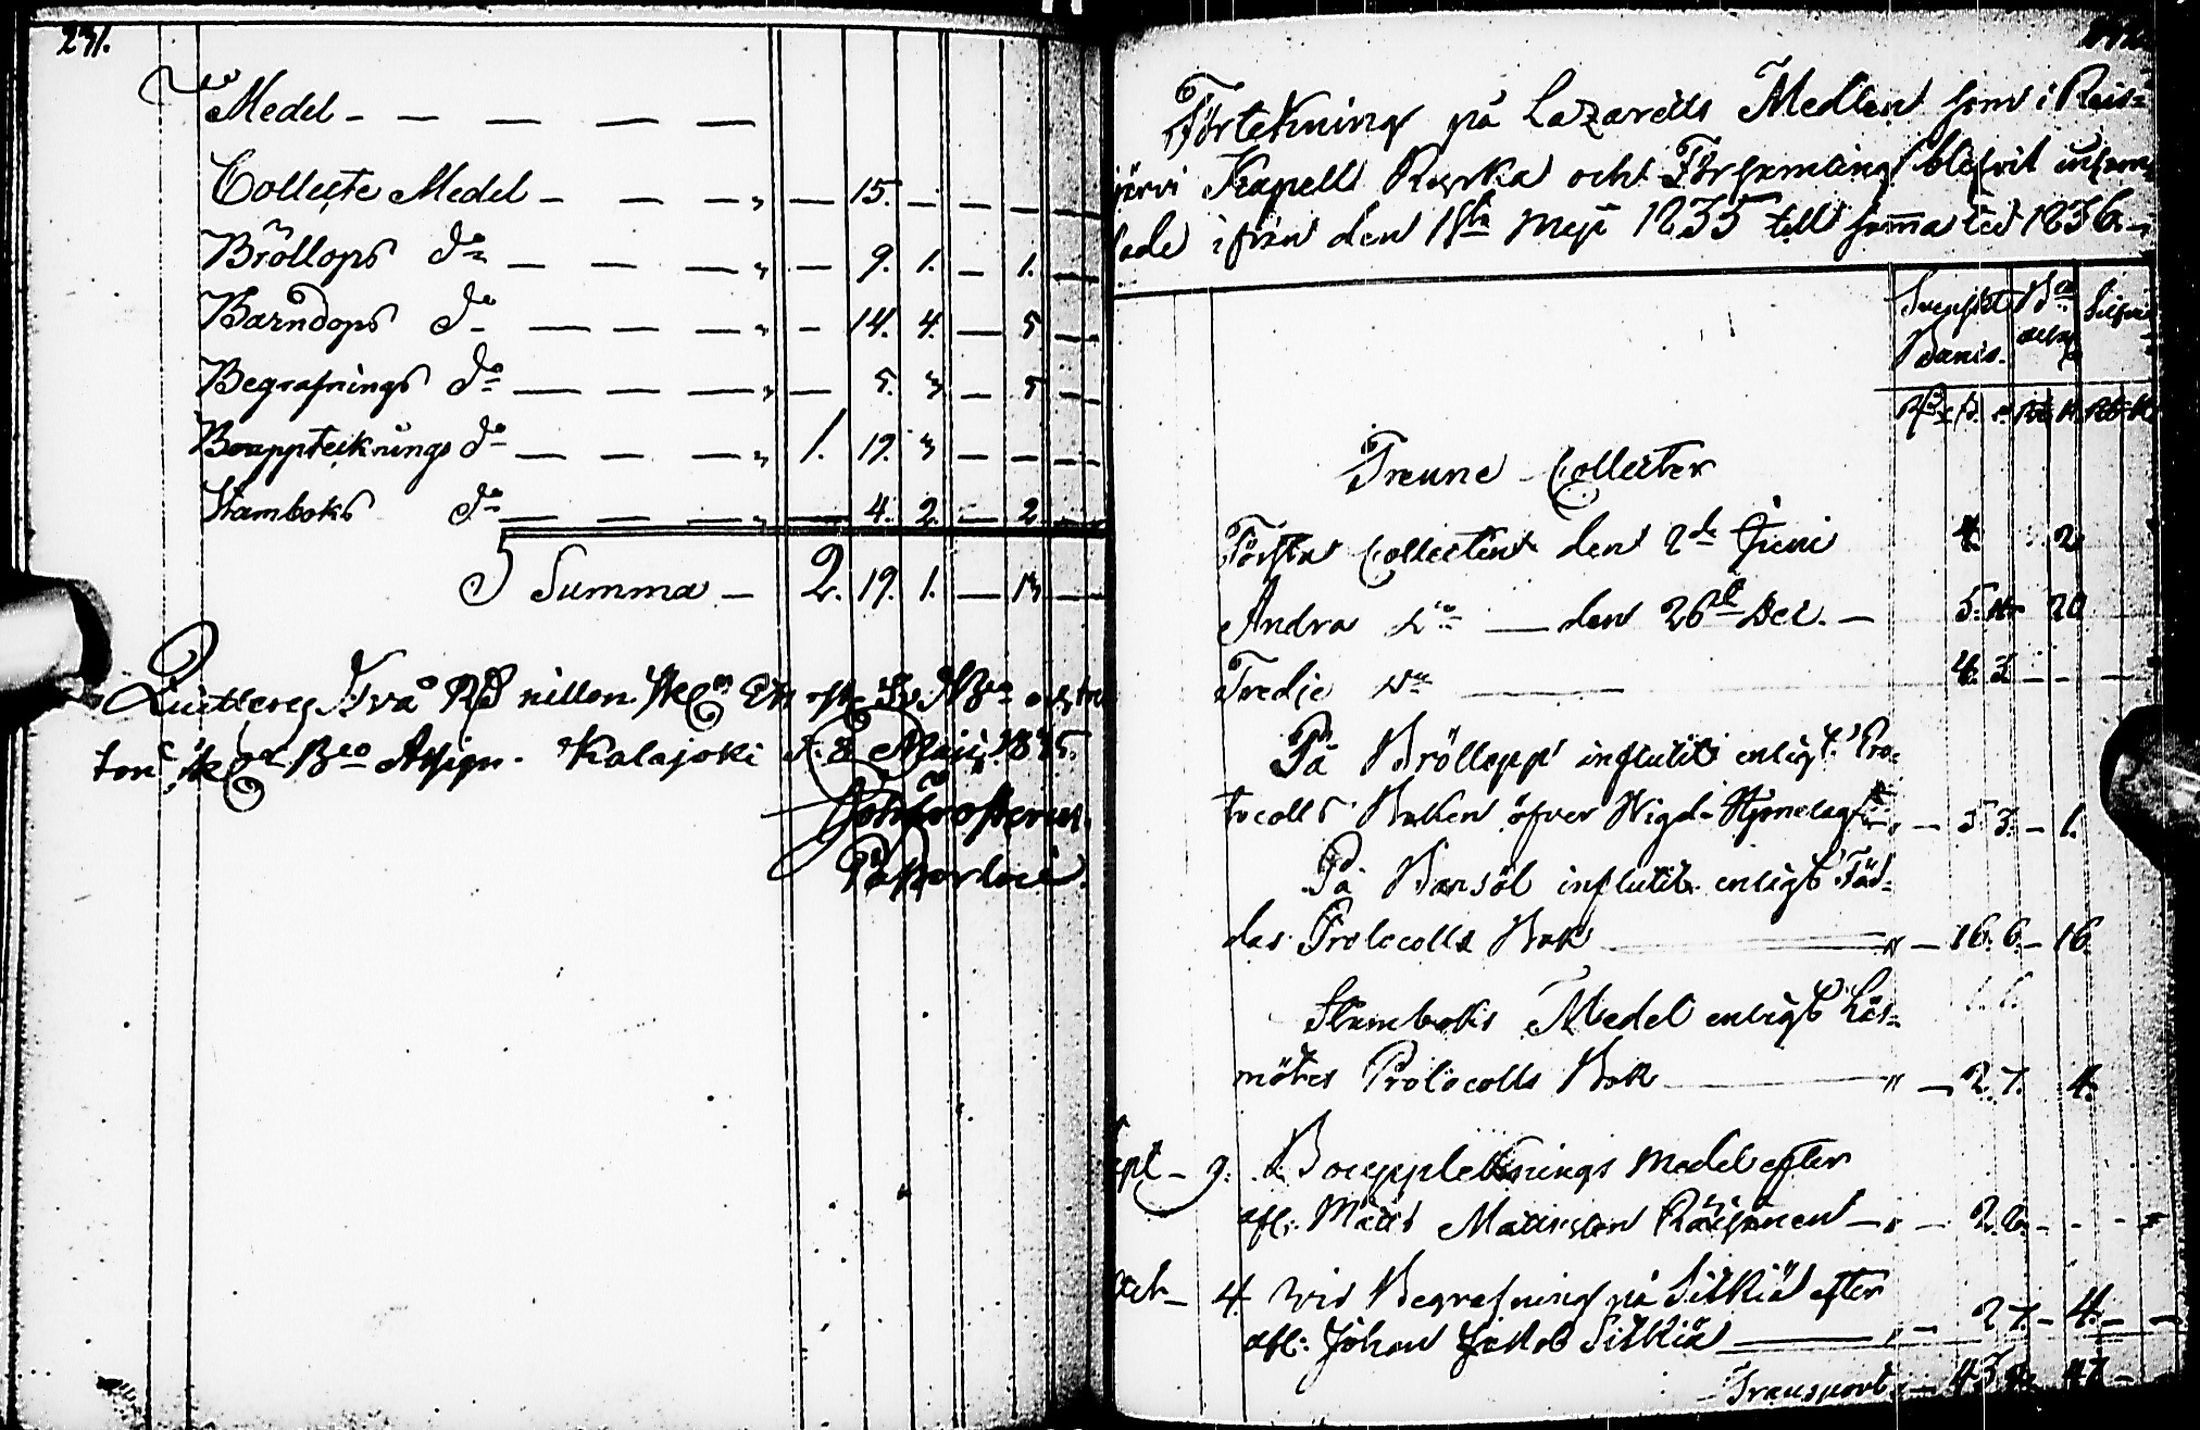 231.
Medel - — — — —
Collecte Medel - — — — 15. - - - - -
Bröllops d:o — — — — 9. 1. — 1. —
Barndops d:o — — — — 14. 4. — 5 —
Begrafnings d:o — — — — 5. 3 — 5 —
Bouppteiknings d:o — — — 1. 19. 3 — — —
Stamboks d:o — — — — 4. 2. — 2 —
Summa — 2. 19. 1. — 13 —
Quitteras Två Rd nitton sk. En
ton sk. B:co Assign. Kalajoki d. 8 Maji 1835.
Joh. Frosterus
Past. loci.
Förtekning på Lazaretts Medlen som i Reis=
järvi Kapells Kyrka och Församling blifvit insam
lade ifrån den 1sta Maji 1835 till samma tid 1836.
Svenskt B:co Silfver
Banco.
Trenne Collecter
Första Collecten den 2de Junii 4. 2
Andra D:o — den 26te Dec. — 5. 20
Tredje D:o — 4. 3. — —
På Bröllopp influtit enligt Pro=
tocolls Boken öfver Wigd — 5 3. — 1.
På Barsöl influtit enligt Föd=
das Protocolls Bok — 16. 6. — 16.
Stamboks Medel enligt Läs=
mötes Protocolls Bok — 2. 7. 4.
Sept — 9. Boupptecknings medel efter
afl: Matts Mattsson Räisänen — 2. 6. - - -
Oct — 4. wid Begrafning på Sitkiä efter
afl: Johan Jakob Sitkiä — 2 7. — 4. —
Transport — 43 47 —